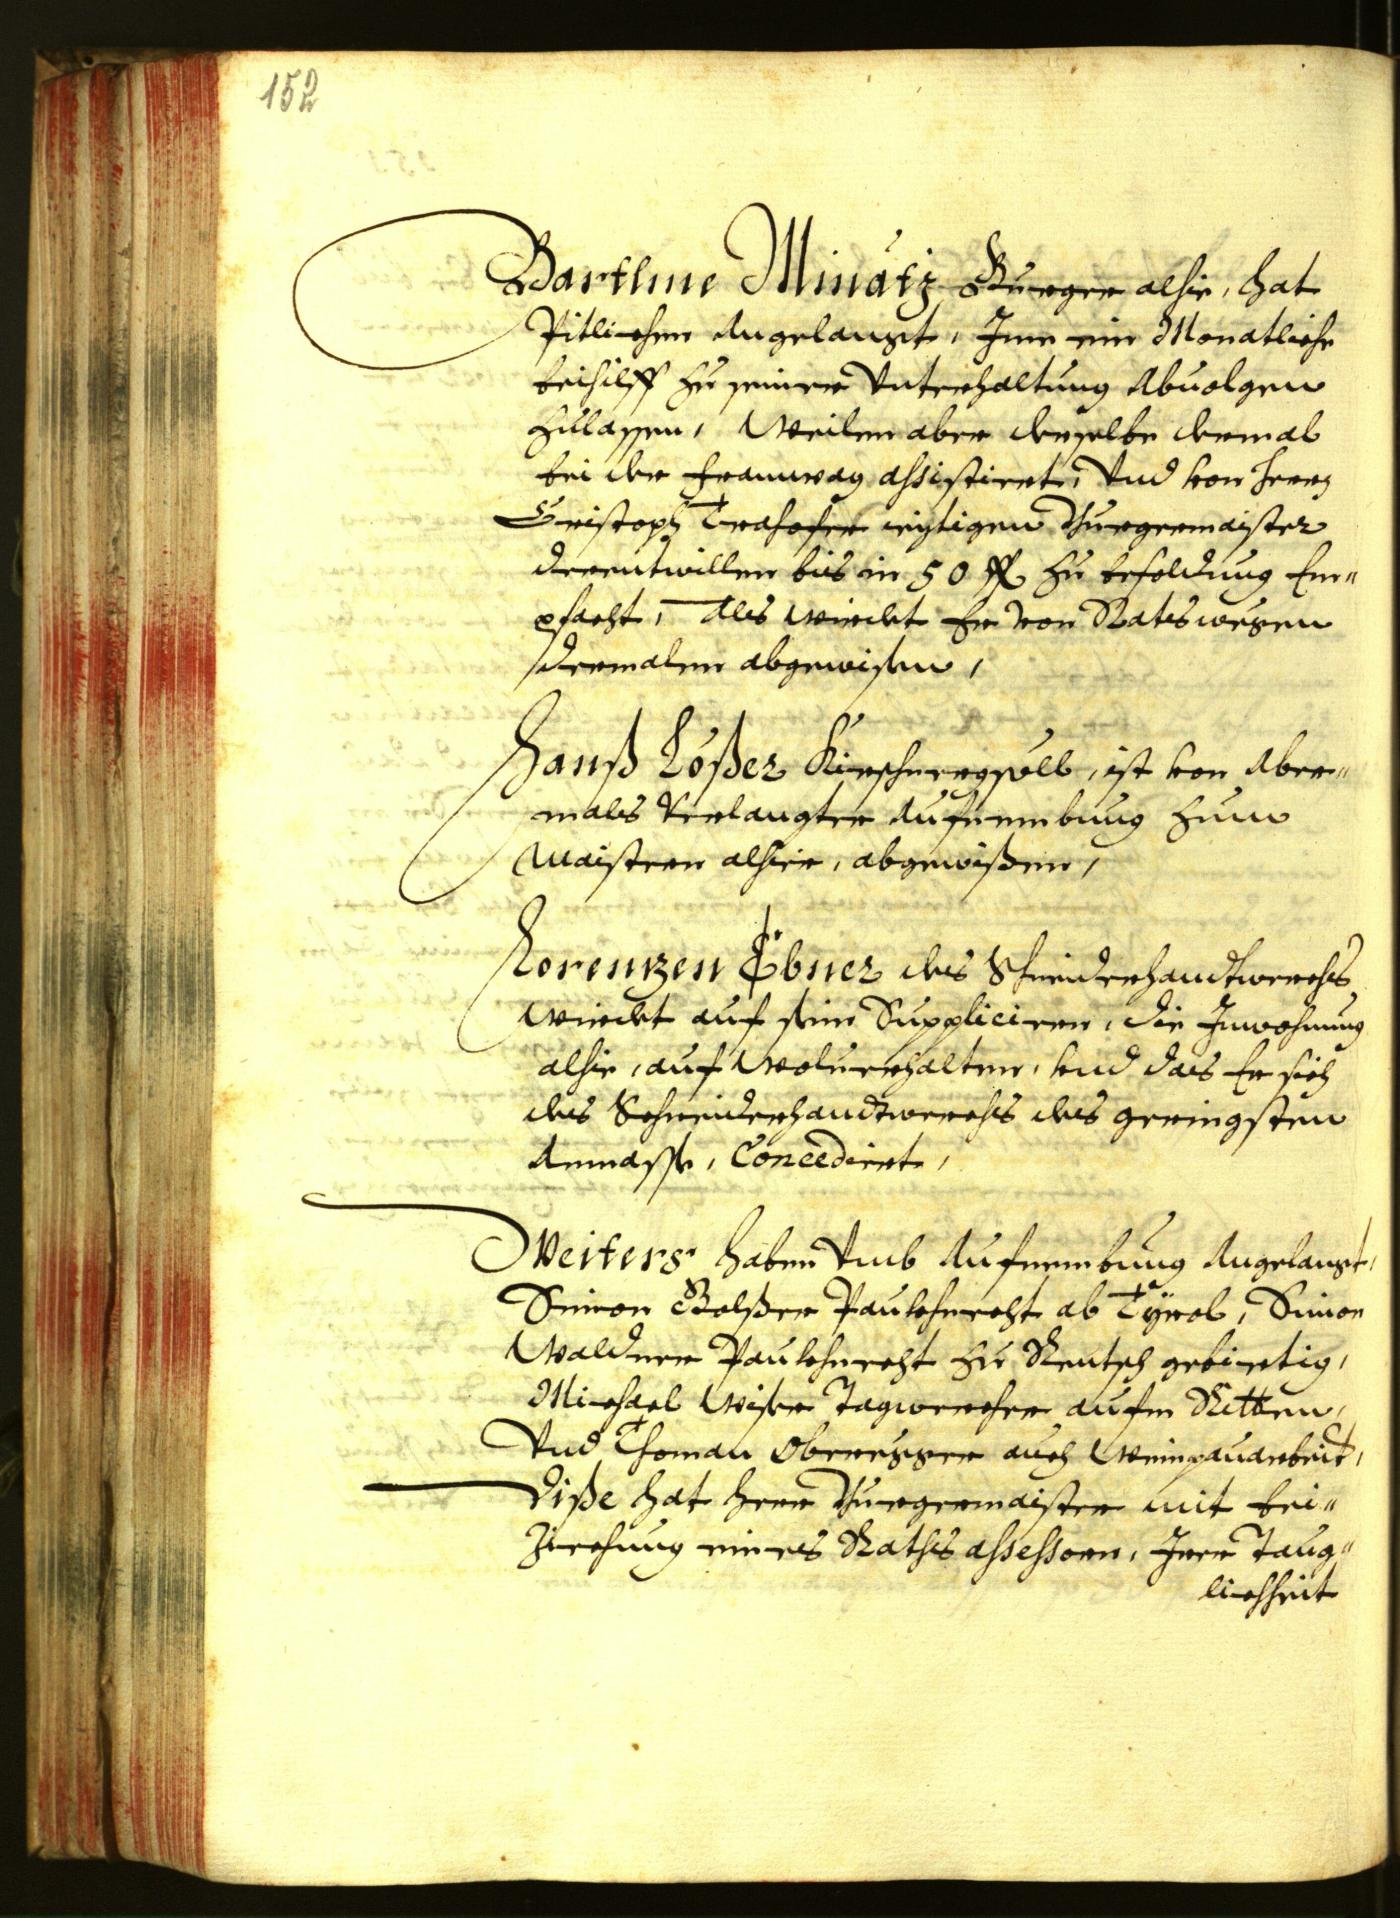 152
Bartlme Minátz Burger alhie, hat
Pitlichen Angelangt, Ime ein Monatliche
beihilff zu seiner Unterhaltung Abuolgen
zulassen, Weilen aber derselbe dermal
bei der Frannwag assistiert, Und von herrn
Cristoph Trahofer ieztigen Burgermaister
derentwillen bis in 50 fl. zu besoldung Em-
pfacht, Als wirdet Er von Ratswegen
dermalen abgewisen,
Hanß Loßer Kirschnergsöll, ist von Aber-
mals Verlangter Aufnembung zum
Maistern alhier, abgewißen,
Lorenzen Ebner des Schneiderhandtwerchs
wirdet auf sein Suppliciren, die Inwohnung
alhie, auf Woluerhalten, Und das Er sich
des Schneiderhandtwerchs des geringsten
Anmasse, Concediert,
Weiters haben Umb Aufnembung Angelangt,
Simon Paukhnecht ab Tyrol, Simon
Waldner Paukhnecht zu Rentsch gebirtig,
Michael Wiser Tagwercher aufm Ritten,
Und Thoman Oberegger auch Weinpauarbeit,
Diße hat herr Burgermaister mit bei-
ziechung eines Raths assessorn, Irer Taug-
lichheit